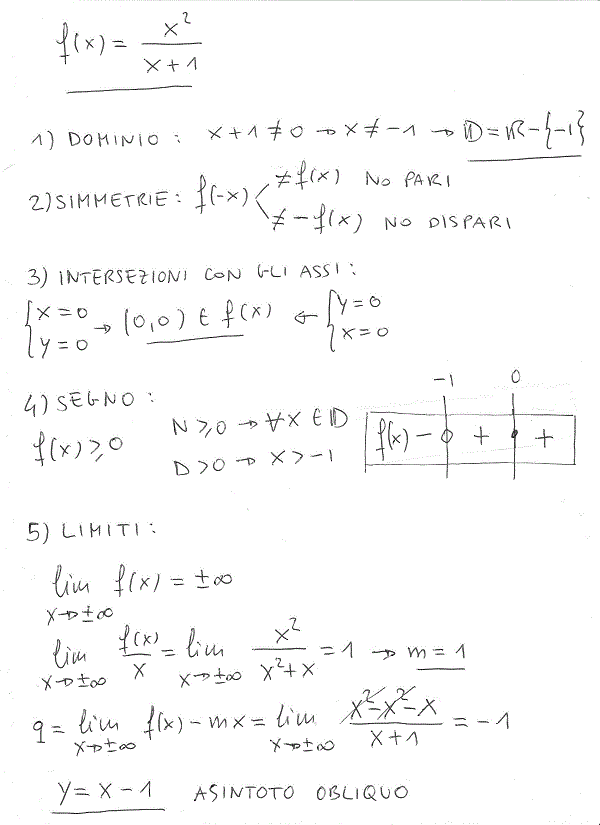 f(x) = x² / (x + 1)
1) DOMINIO : x + 1 ≠ 0 → x ≠ -1 → D = R - {-1}
2) SIMMETRIE : f(-x) < ≠ f(x) NO PARI
≠ -f(x) NO DISPARI
3) INTERSEZIONI CON GLI ASSI :
{x = 0, y = 0 → (0,0) ∈ f(x) ← {y = 0, x = 0
4) SEGNO :
f(x) ≥ 0
N ≥ 0 → ∀x ∈ D
D > 0 → x > -1
-1 0
f(x) - + +
5) LIMITI :
lim x→±∞ f(x) = ±∞
lim x→±∞ f(x)/x = lim x→±∞ x² / (x² + x) = 1 → m = 1
q = lim x→±∞ f(x) - mx = lim x→±∞ (x² - x² - x) / (x + 1) = -1
y = x - 1 ASINTOTO OBLIQUO